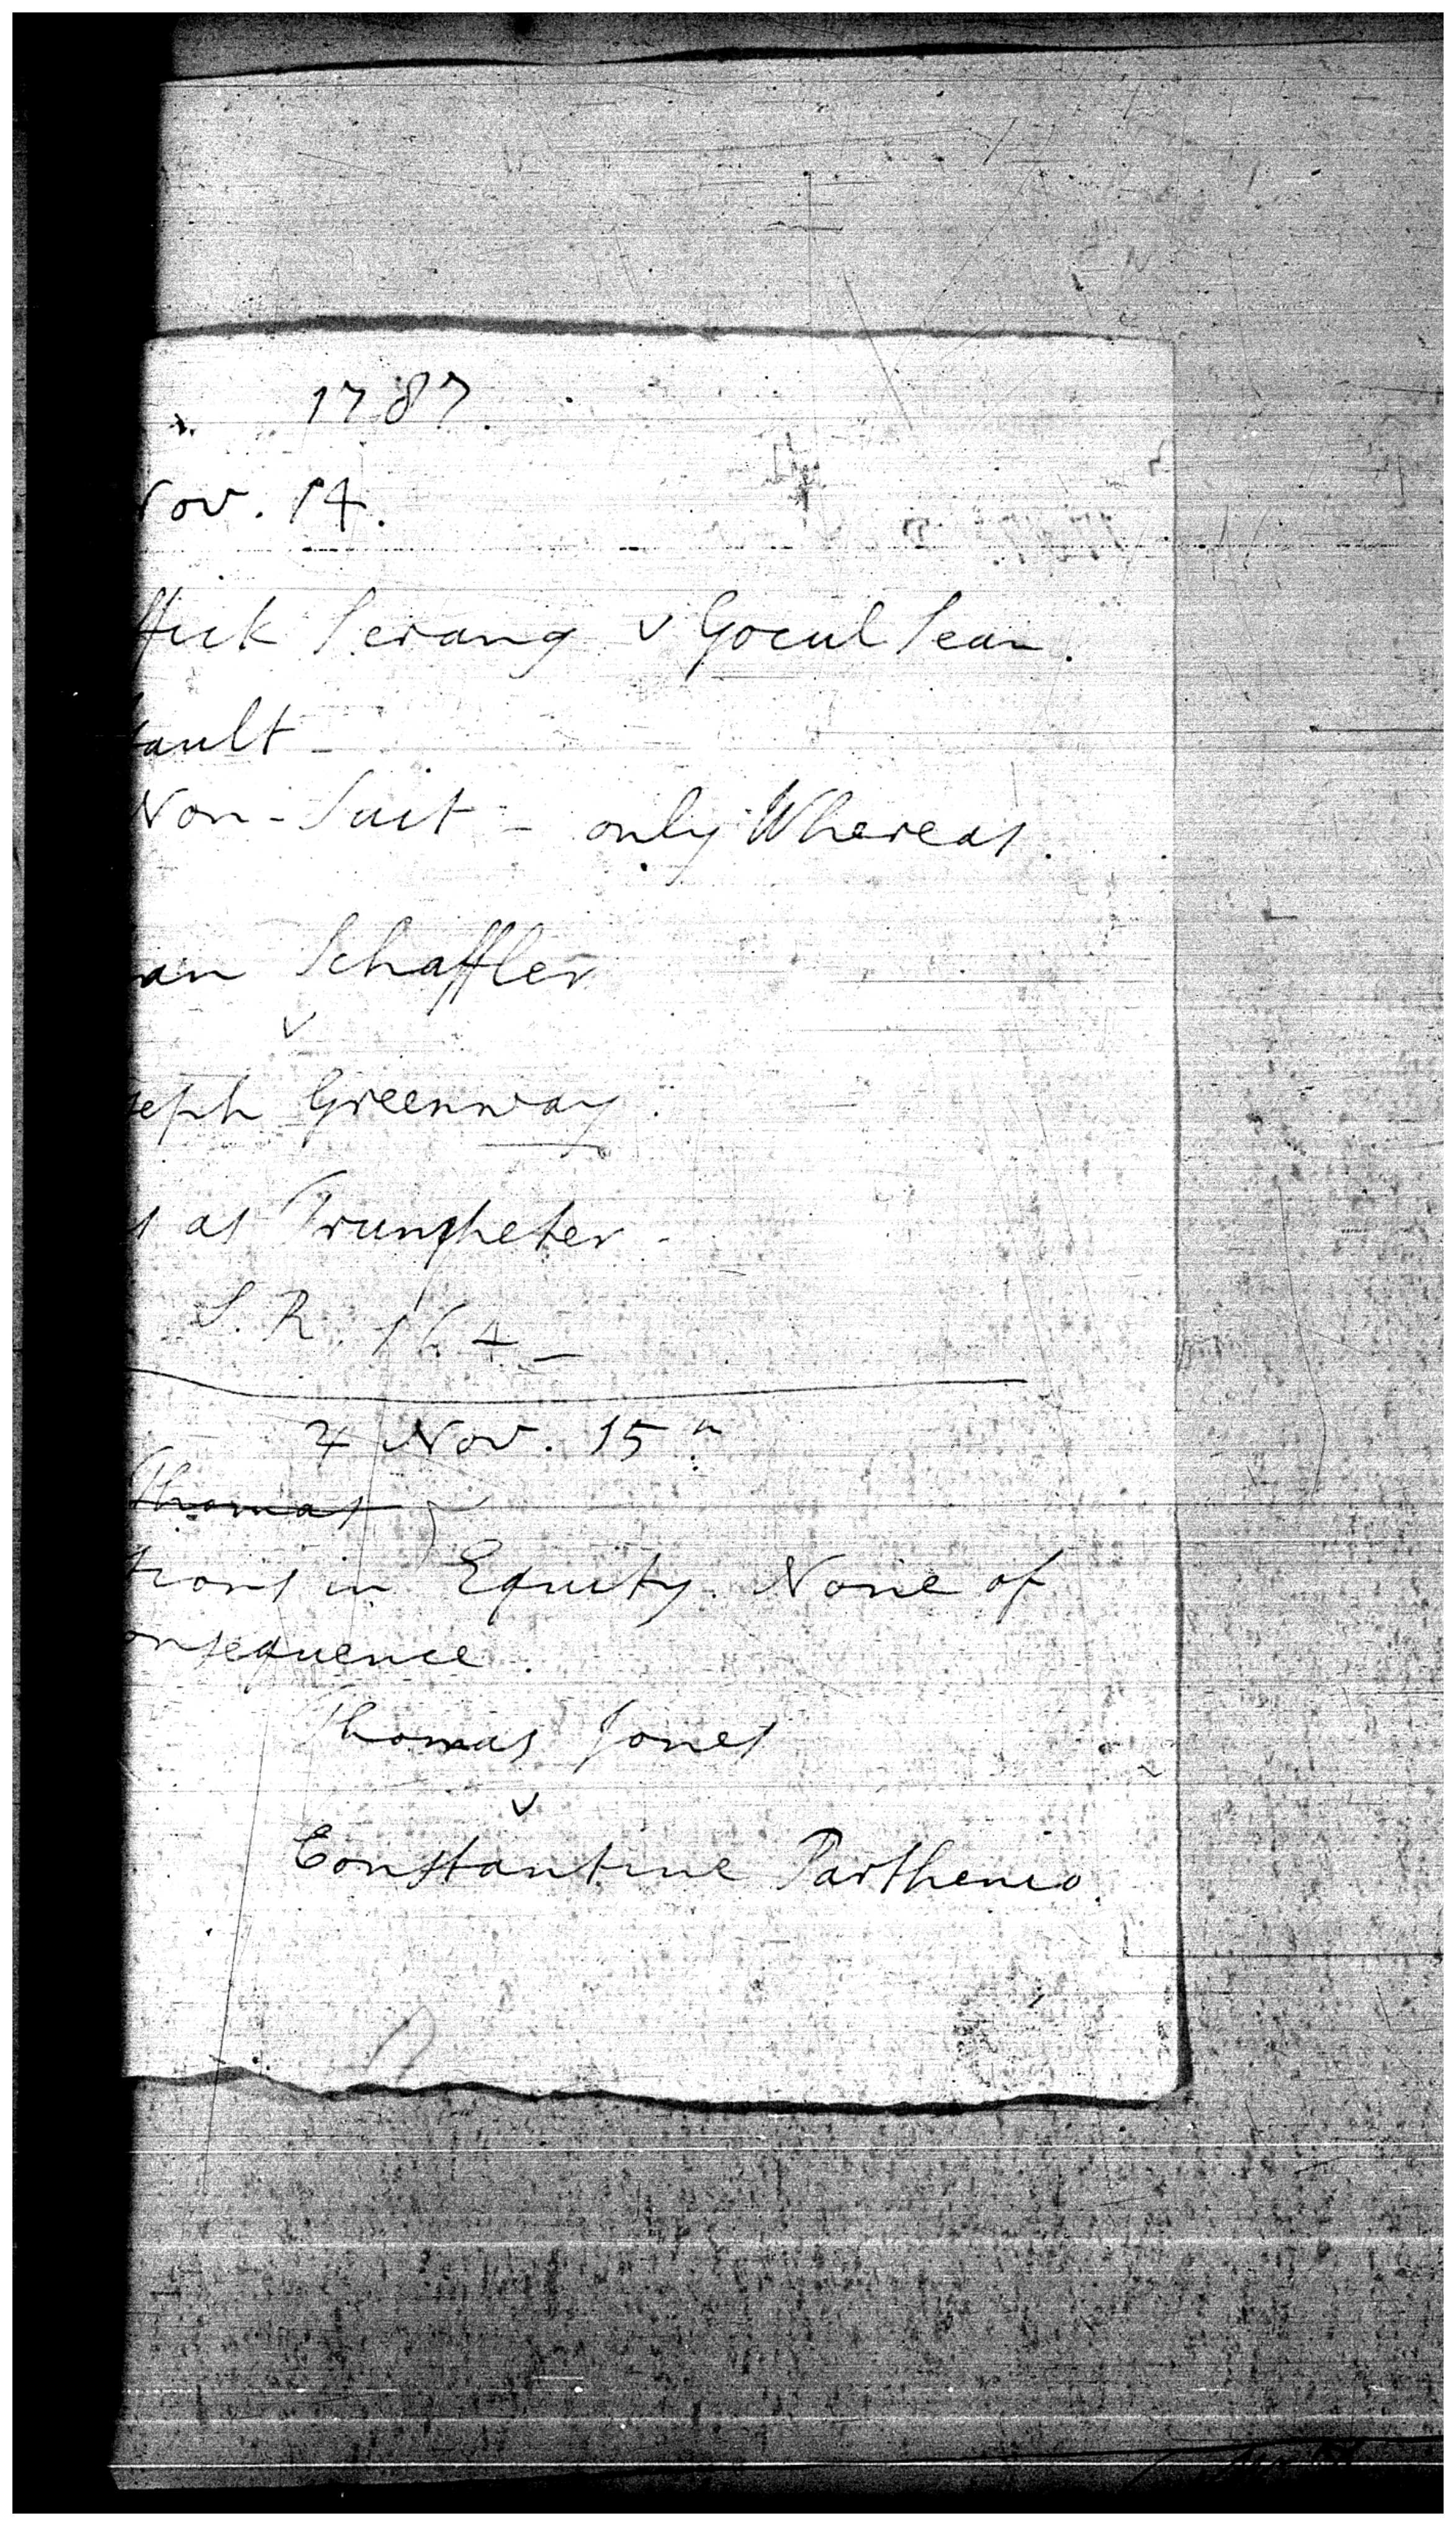 1787.
Nov. 14.
ffick Serang v Gocul Sean.
fault -
Non-Suit - only Whereas.
an Schaffler
v
seph Greenway.
s as Trumpheter -
S. R. 164 -
♃ Nov. 15th
Thomas
tions in Equity. None of
onsequence.
Thomas Jones
v
Constantine Parthenio.